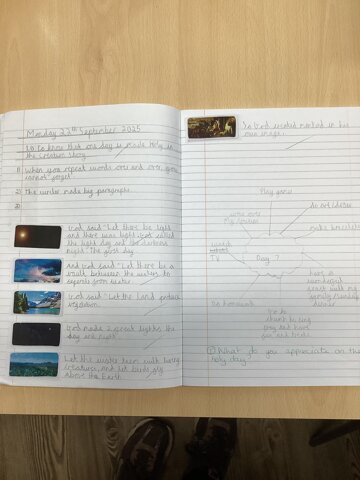 Monday 22nd September 2025
LO: To know that one day is made holy in
the creation story.
1) When you repeat words over and over, you
cannot forget.
2) The writer made big paragraphs.
3)
God said "Let there be light
and there was light. God called
the light day and the darkness
night." The first day
And God said "Let there be a
vault between the waters to
separate from water
God said "Let the land produce
vegetation.
God made 2 great lights the
day and night
Let the water teem with living
creatures, and let birds fly
above the Earth
So God created mankind in his
own image.
Play games
Do art ideas
make bracelets
watch
TV
Day 7
Do homework
have a
family
dinner
What do you appreciate on the
holy day?